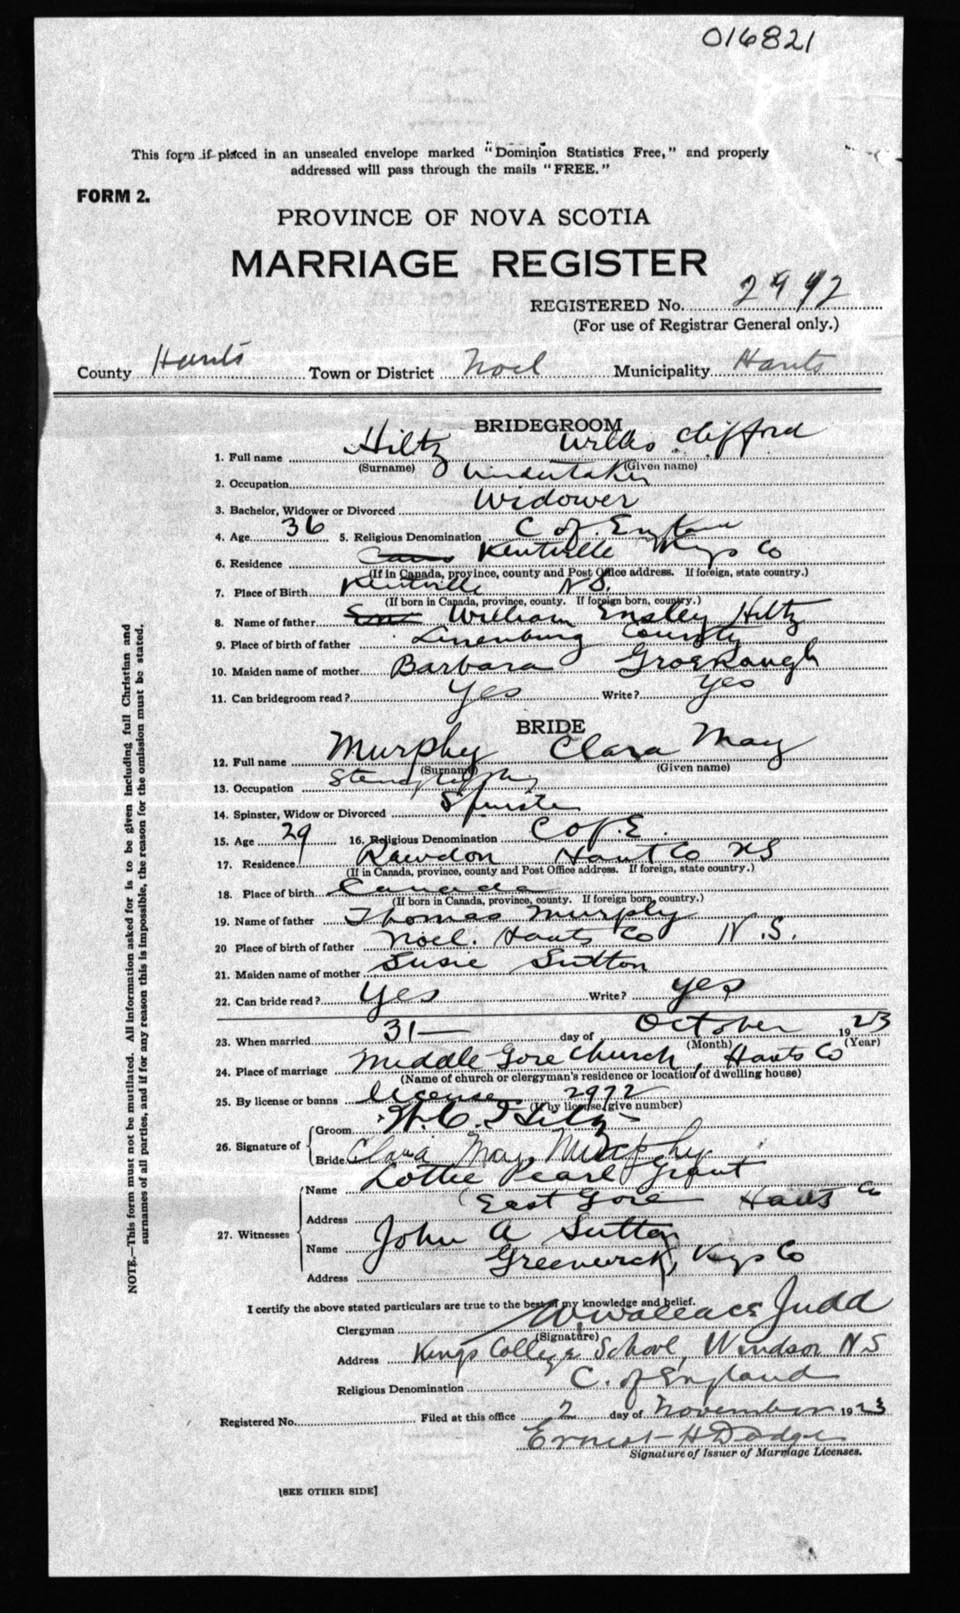 016821
This form if placed in an unsealed envelope marked "Dominion Statistics Free," and properly
addressed will pass through the mails "FREE."
FORM 2.
PROVINCE OF NOVA SCOTIA
MARRIAGE REGISTER
REGISTERED No. 2972
(For use of Registrar General only.)
County Hants Town or District Noel Municipality Hants
BRIDEGROOM
1. Full name Hiltz Willis Clifford
(Surname) (Given name)
2. Occupation Undertaker
3. Bachelor, Widower or Divorced Widower
4. Age 36 5. Religious Denomination C of England
6. Residence Kentville Kings Co
(If in Canada, province, county and Post Office address. If foreign, state country.)
7. Place of Birth Kentville N.S.
(If born in Canada, province, county. If foreign born, country.)
8. Name of father William Ensley Hiltz
9. Place of birth of father Lunenburg County
10. Maiden name of mother Barbara
11. Can bridegroom read? Yes Write? Yes
BRIDE
12. Full name Murphy Clara May
(Surname) (Given name)
13. Occupation Stenography
14. Spinster, Widow or Divorced Spinster
15. Age 29 16. Religious Denomination C of E.
17. Residence Rawdon Hants Co NS
(If in Canada, province, county and Post Office address. If foreign, state country.)
18. Place of birth Canada
(If born in Canada, province, county. If foreign born, country.)
19. Name of father Thomas Murphy
20 Place of birth of father Noel. Hants Co N.S.
21. Maiden name of mother Susie Sutton
22. Can bride read? Yes Write? yes
23. When married 31— day of October 1923
(Month) (Year)
24. Place of marriage Middle Gore Church, Hants Co
(Name of church or clergyman's residence or location of dwelling house)
25. By license or banns license 2972
(If by license, give number)
26. Signature of
Groom W. C. Hiltz
Bride Clara May Murphy
27. Witnesses
Name Lottie Pearl Grant
Address East Gore Hants Co
Name John A Sutton
Address Greenwich, Kings Co
I certify the above stated particulars are true to the best of my knowledge and belief.
Clergyman W Wallace Judd
(Signature)
Address Kings College School, Windsor N S
Religious Denomination C. of England
Registered No. Filed at this office 2 day of November 1923
Ernest H Dodge
Signature of Issuer of Marriage Licenses.
[SEE OTHER SIDE]
NOTE.—This form must not be mutilated. All information asked for is to be given including full Christian and
surnames of all parties, and if for any reason this is impossible, the reason for the omission must be stated.